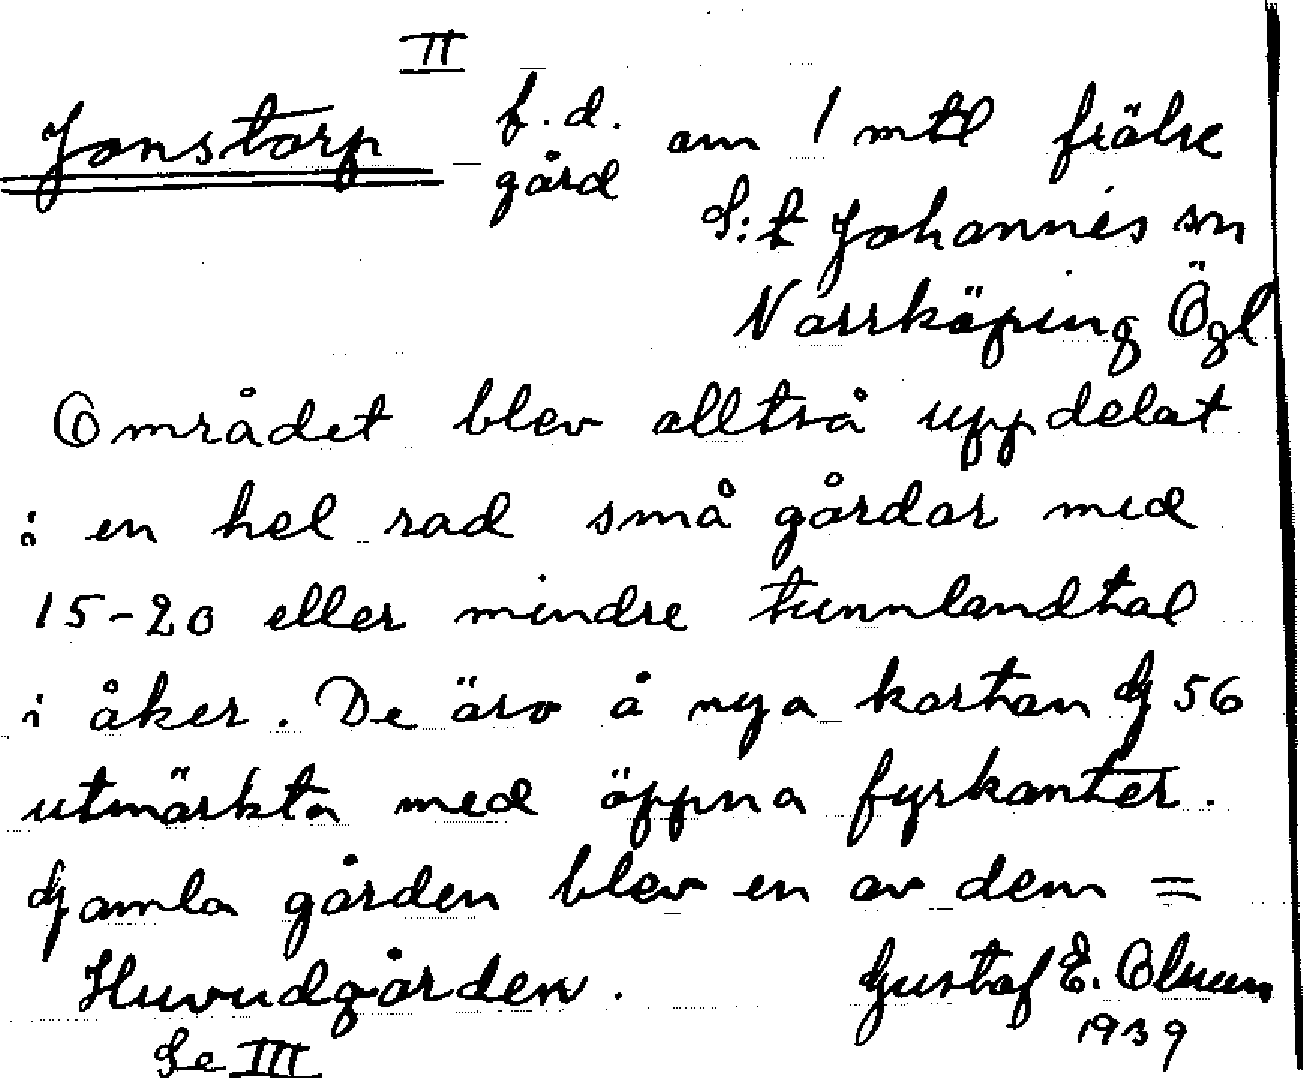 II
Jonstorp – f.d. gård om 1 mtl frälse
S:t Johannes sn
Norrköping Ögl
Området blev alltså uppdelat
i en hel rad små gårdar med
15-20 eller mindre tunnlandtal
i åker. De äro å nya kartan G 56
utmärkta med öppna fyrkanter.
Gamla gården blev en av dem =
Huvudgården.
Gustaf E. Olsson
1939
Se III